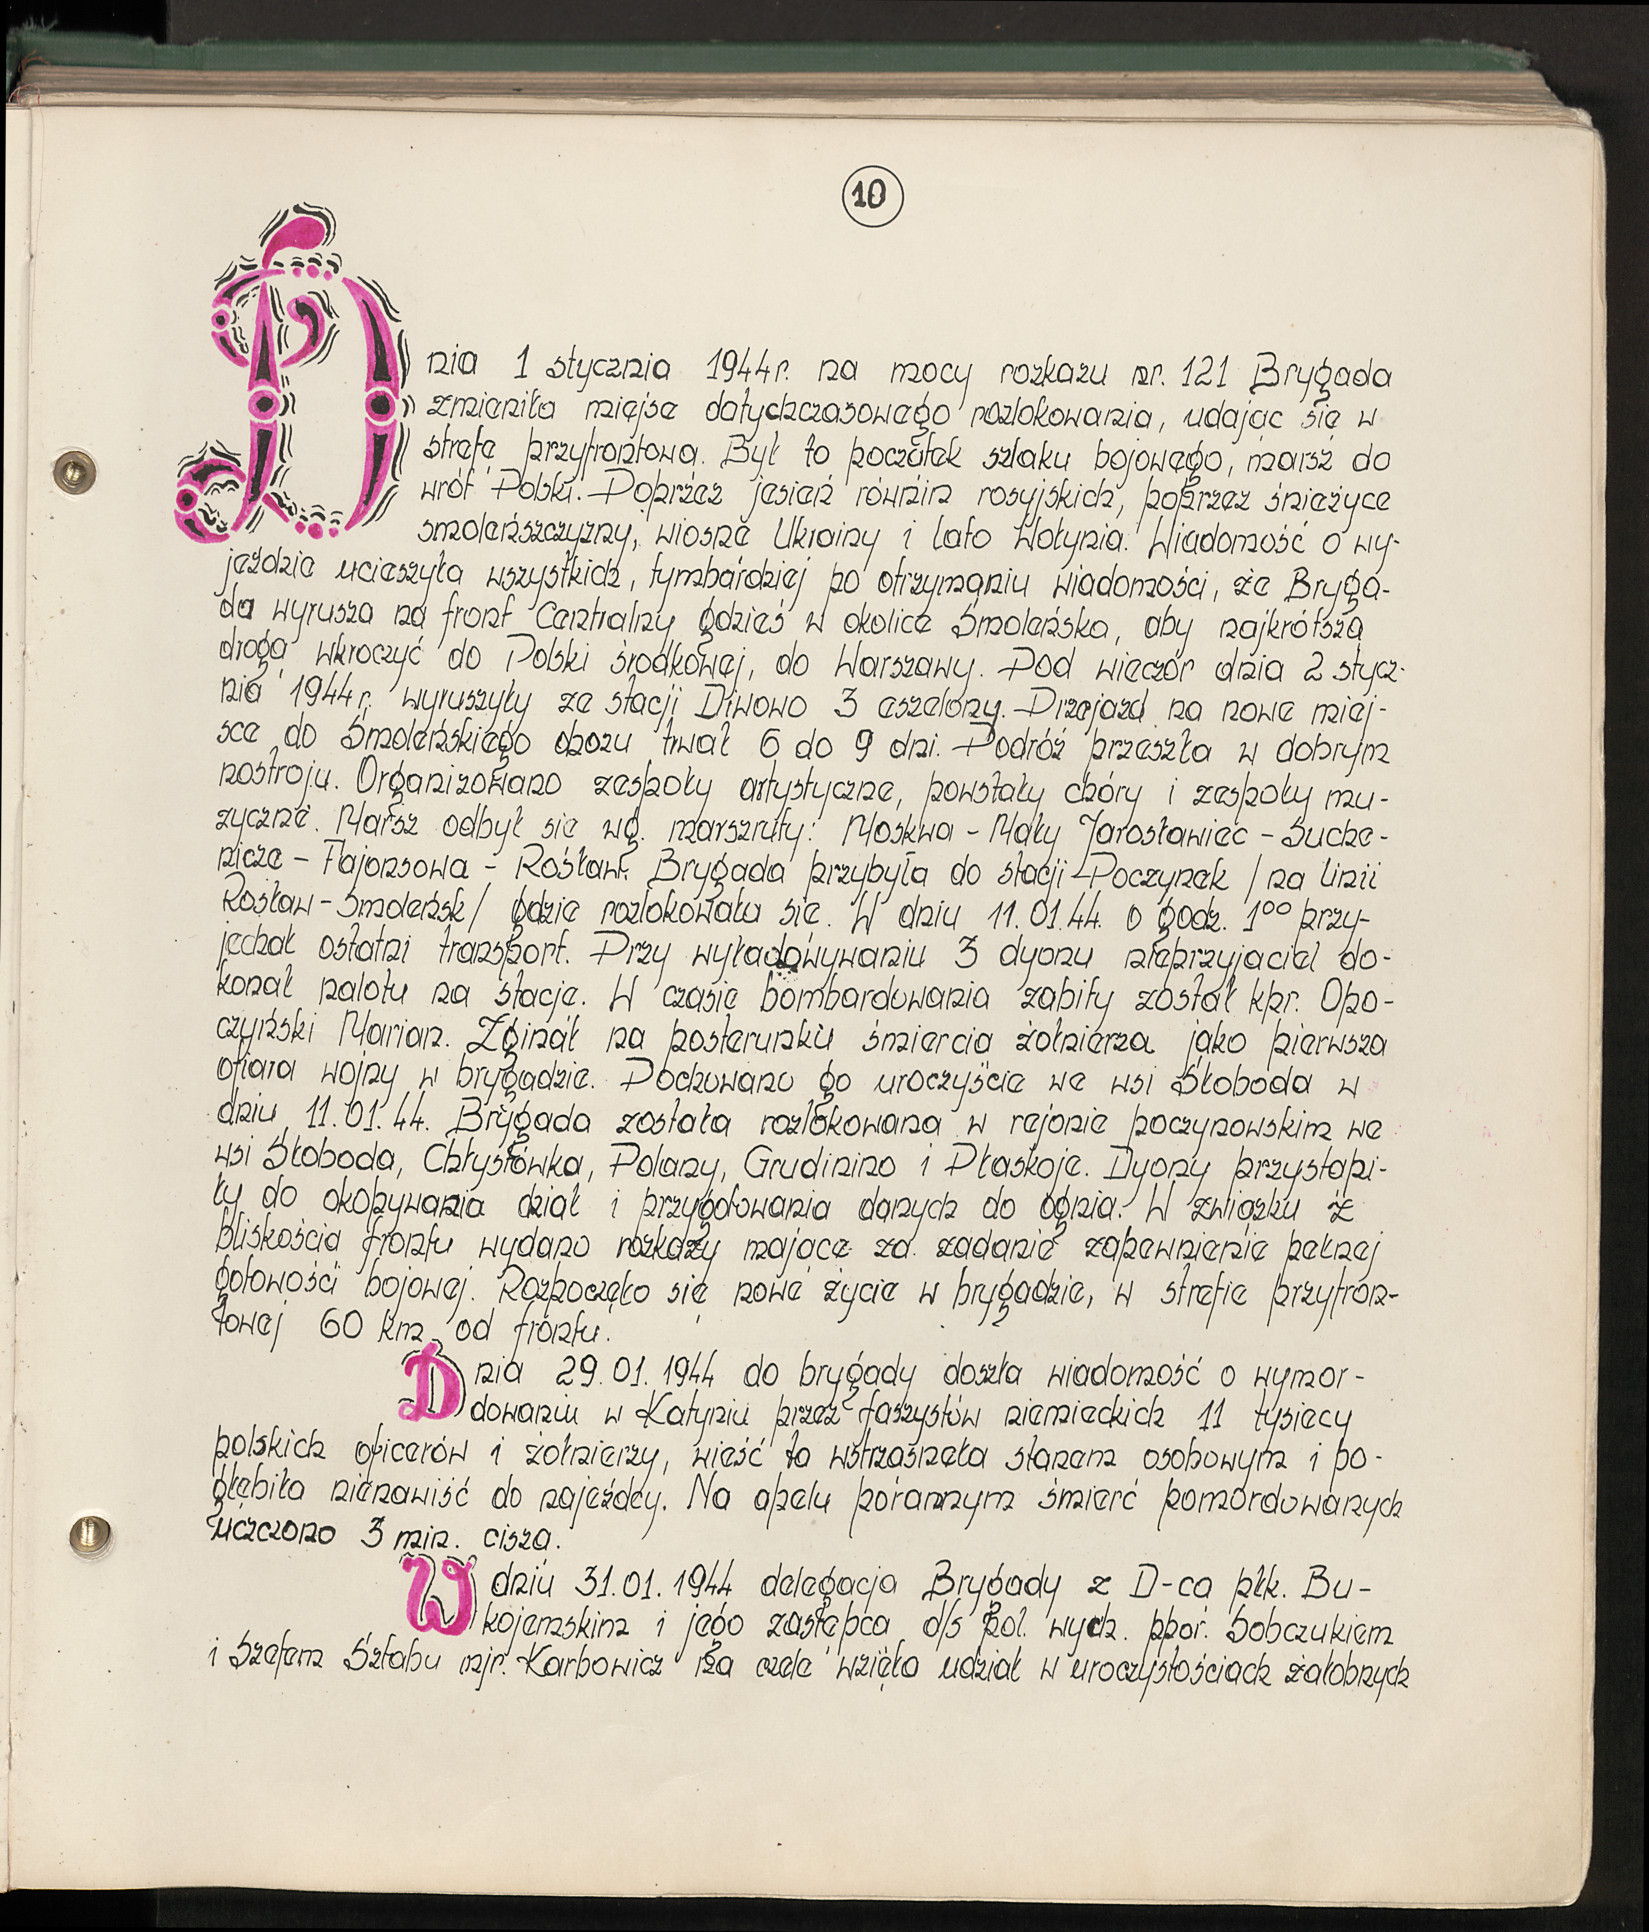 10
Dnia 1 stycznia 1944r. na mocy rozkazu nr. 121 Brygada
zmieniła miejsce dotychczasowego rozlokowania, udając się w
strefę przyfrontową. Był to początek szlaku bojowego, marsz do
wrót Polski. Poprzez jesień równin rosyjskich, poprzez śnieżyce
smoleńszczyzny, wiosnę Ukrainy i lato Wołynia. Wiadomość o wy-
jeździe ucieszyła wszystkich, tymbardziej po otrzymaniu wiadomości, że Bryga-
da wyrusza na front Centralny gdzieś w okolice Smoleńska, aby najkrótszą
drogą wkroczyć do Polski środkowej, do Warszawy. Pod wieczór dnia 2 stycz-
nia 1944r. wyruszyły ze stacji Diwowo 3 eszelony. Przejazd na nowe miej-
sce do Smoleńskiego obozu trwał 6 do 9 dni. Podróż przeszła w dobrym
nastroju. Organizowano zespoły artystyczne, powstały chóry i zespoły mu-
zyczne. Marsz odbył się wg. marszruty: Moskwa - Mały Jarosławiec - Suche-
nicze - Fajansowa - Rosław. Brygada przybyła do stacji Poczynek / na linii
Rosław - Smoleńsk / gdzie rozlokowała się. W dniu 11.01.44. o godz. 1⁰⁰ przy-
jechał ostatni transport. Przy wyładowywaniu 3 dyonu nieprzyjaciel do-
konał nalotu na stację. W czasie bombardowania zabity został kpr. Opo-
czyński Marian. Zginął na posterunku śmiercią żołnierza jako pierwsza
ofiara wojny w brygadzie. Pochowano go uroczyście we wsi Słoboda w
dniu 11.01.44. Brygada została rozlokowana w rejonie poczynowskim we
wsi Słoboda, Chłystówka, Polany, Grudinino i Płaskoje. Dyony przystąpi-
ły do okopywania dział i przygotowania danych do ognia. W związku z
bliskością frontu wydano rozkazy mające za zadanie zapewnienie pełnej
gotowości bojowej. Rozpoczęło się nowe życie w brygadzie, w strefie przyfron-
towej 60 km od frontu.
Dnia 29.01.1944 do brygady doszła wiadomość o wymor-
dowaniu w Katyniu przez faszystów niemieckich 11 tysięcy
polskich oficerów i żołnierzy, wieść ta wstrząsnęła stanem osobowym i po-
głębiła nienawiść do najeźdźcy. Na apelu porannym śmierć pomordowanych
uczczono 3 min. ciszą.
W dniu 31.01.1944 delegacja Brygady z D-cą płk. Bu-
kojemskim i jego zastępcą d/s pol. wych. ppor. Sobczukiem
i Szefem Sztabu mjr. Karbowicz na czele wzięła udział w uroczystościach żałobnych